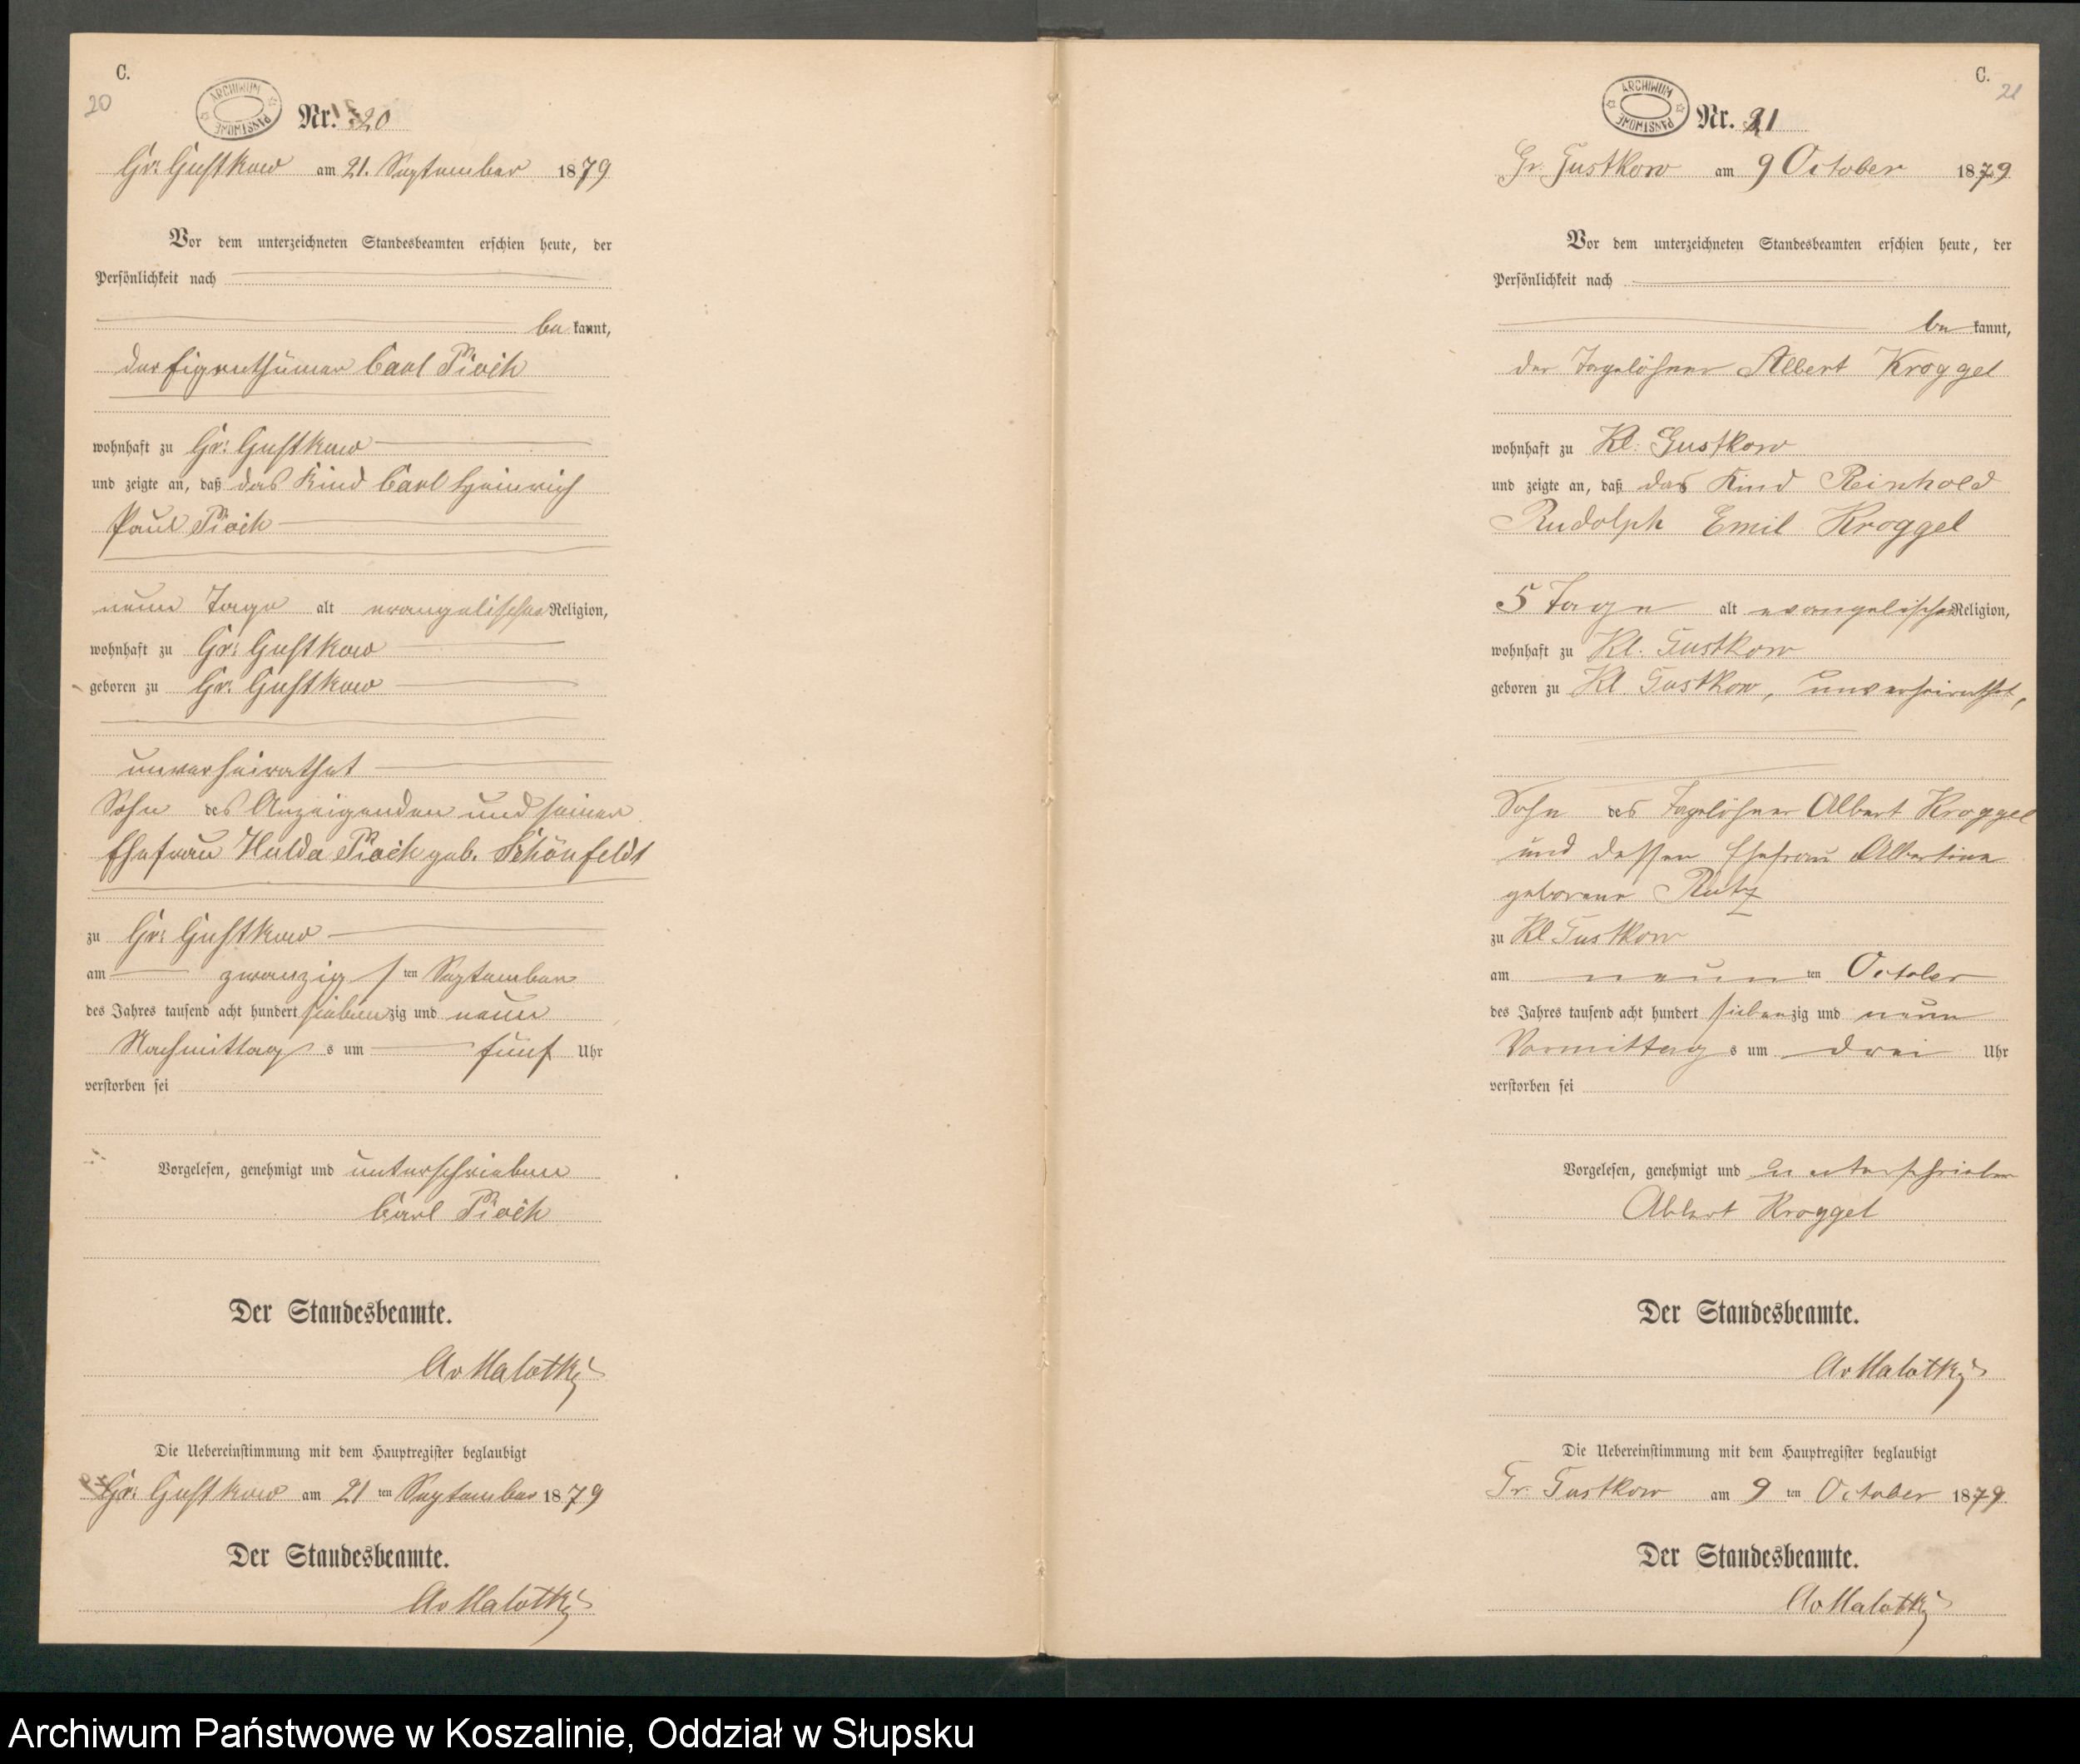 C.
20
ARCHIWUM PAŃSTWOWE
Nr. 20
Gr: Gustkow am 21. September 1879
Vor dem unterzeichneten Standesbeamten erschien heute, der
Persönlichkeit nach
be kannt,
der Eigenthümer Carl Pioch
wohnhaft zu Gr: Gustkow
und zeigte an, daß das Kind Carl Heinrich
Paul Pioch
neun Tage alt evangelischer Religion,
wohnhaft zu Gr: Gustkow
geboren zu Gr: Gustkow
unverheirathet
Sohn des Anzeigenden und seiner
Ehefrau Hulda Pioch geb. Schönfeldt
zu Gr: Gustkow
am zwanzigsten September
des Jahres tausend acht hundert siebenzig und neun
Nachmittags um fünf Uhr
verstorben sei
Vorgelesen, genehmigt und unterschrieben
Carl Pioch
Der Standesbeamte.
Av Malotky
Die Uebereinstimmung mit dem Hauptregister beglaubigt
Gr: Gustkow am 21 ten September 1879
Der Standesbeamte.
Av Malotky
C.
21
ARCHIWUM PAŃSTWOWE
Nr. 21
Gr. Gustkow am 9 October 1879
Vor dem unterzeichneten Standesbeamten erschien heute, der
Persönlichkeit nach
be kannt,
der Tagelöhner Albert Kroggel
wohnhaft zu Kl: Gustkow
und zeigte an, daß das Kind Reinhold
Rudolph Emil Kroggel
5 Tage alt evangelischer Religion,
wohnhaft zu Kl. Gustkow
geboren zu Kl Gustkow, unverheirathet,
Sohn des Tagelöhner Albert Kroggel
und dessen Ehefrau Albertine
geborene Rutz
zu Kl Gustkow
am neun ten October
des Jahres tausend acht hundert siebenzig und neun
Vormittags um drei Uhr
verstorben sei
Vorgelesen, genehmigt und unterschrieben
Albert Kroggel
Der Standesbeamte.
Av Malotky
Die Uebereinstimmung mit dem Hauptregister beglaubigt
Gr. Gustkow am 9 ten October 1879
Der Standesbeamte.
Av Malotky
Archiwum Państwowe w Koszalinie, Oddział w Słupsku